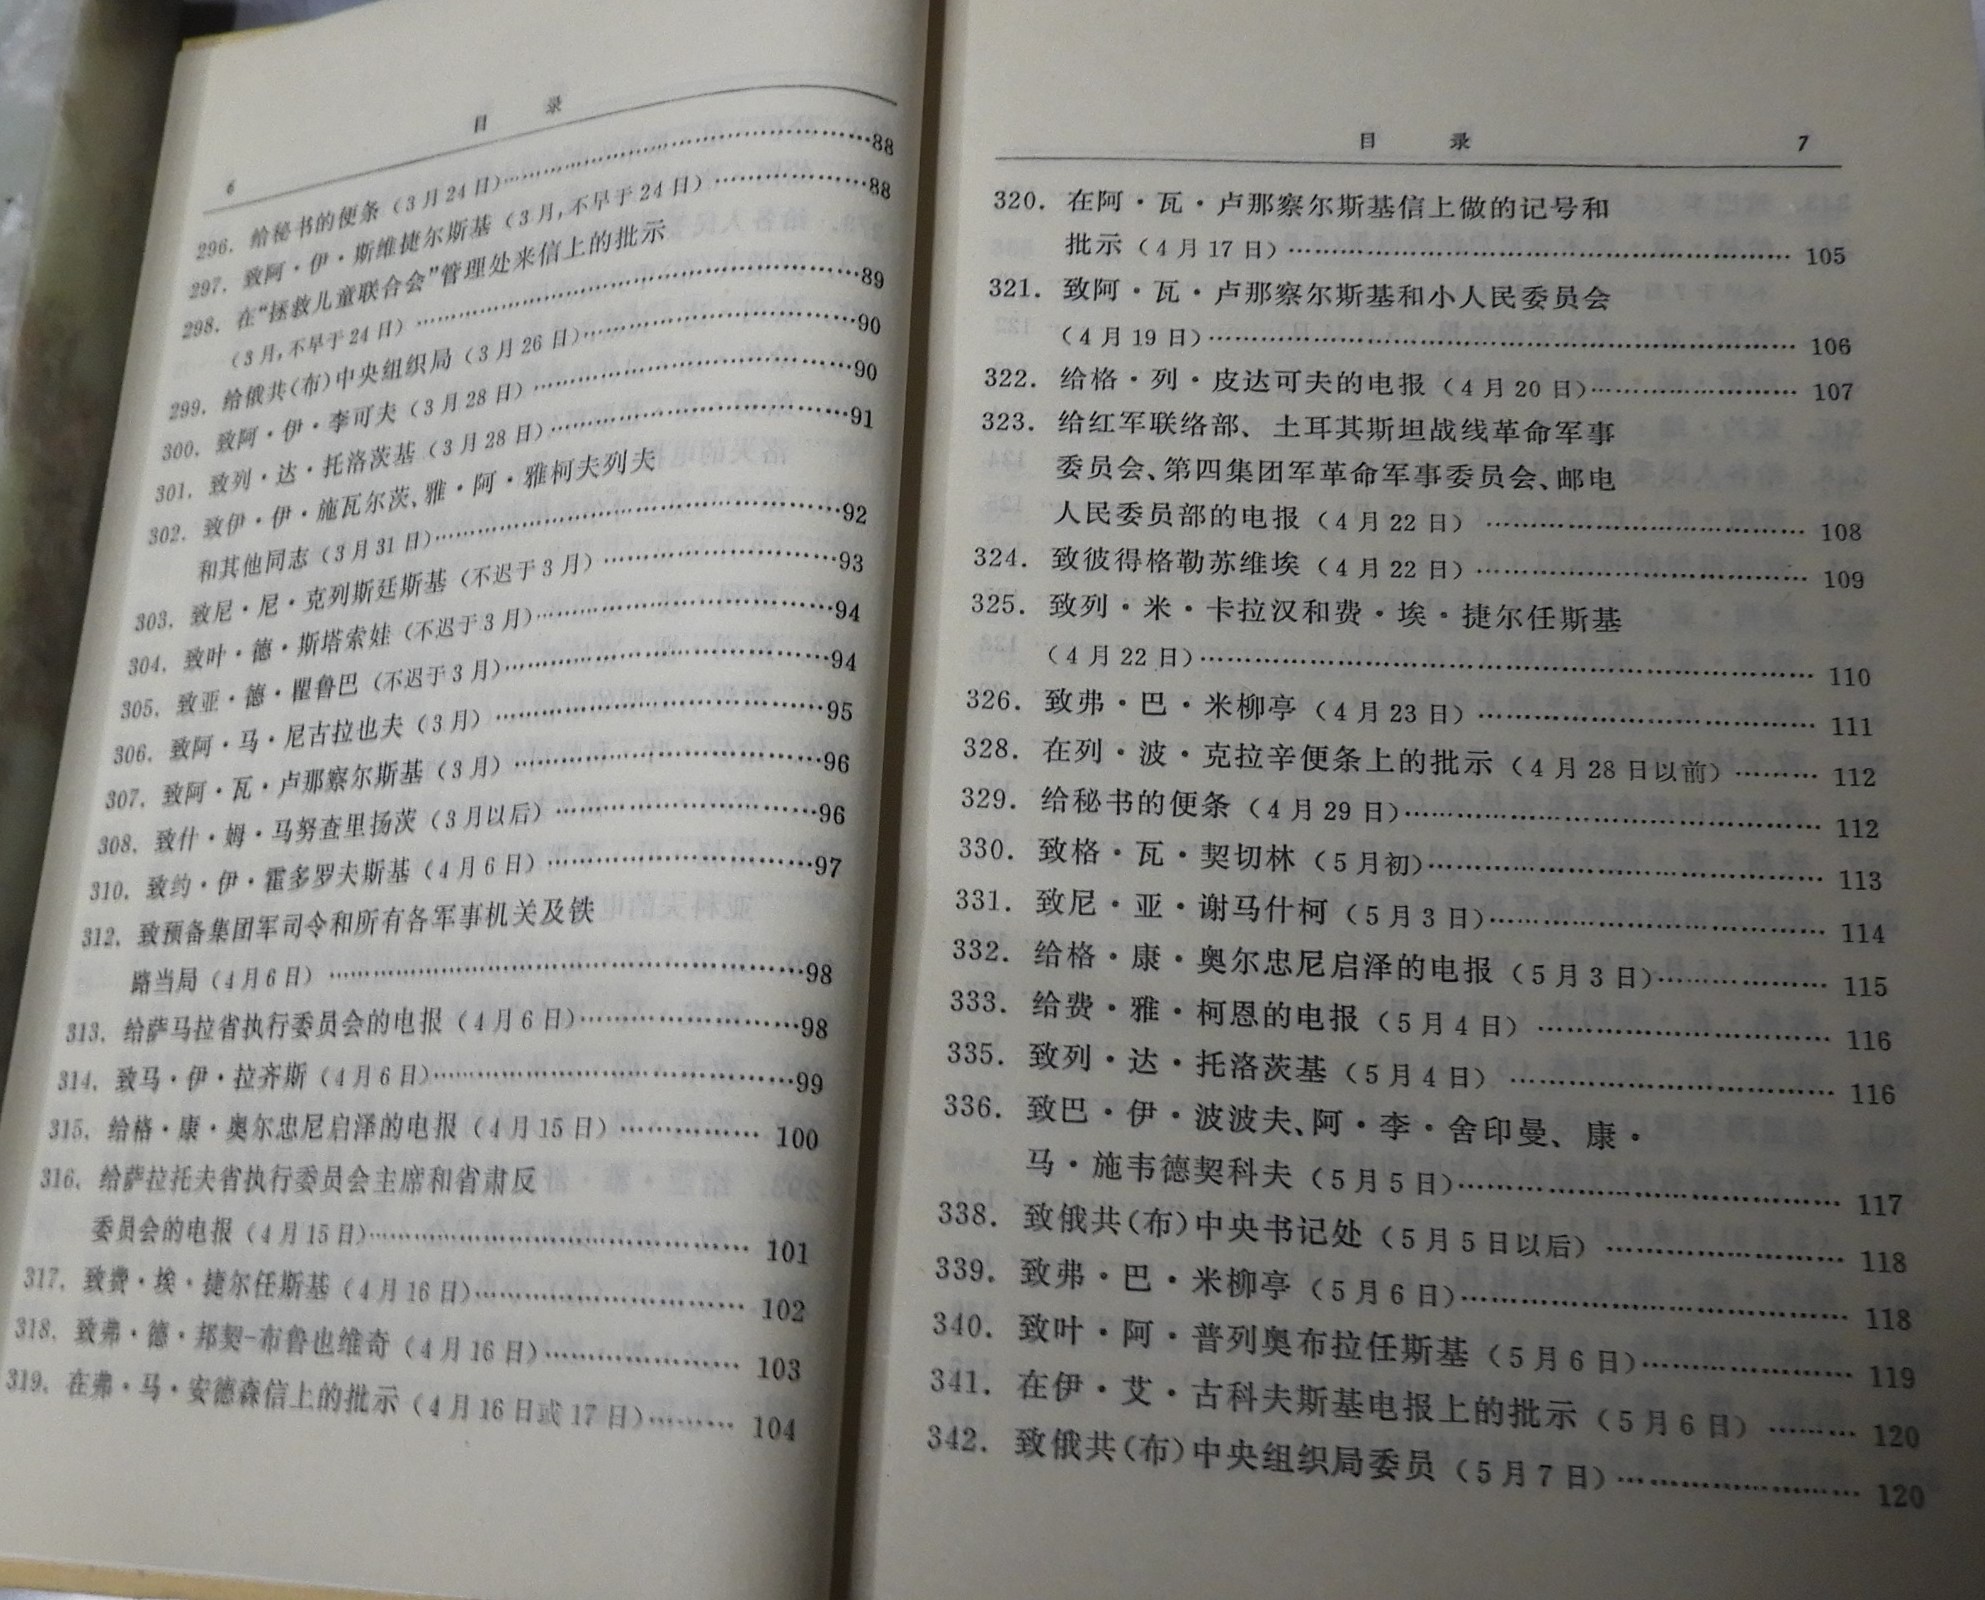 6 目 录
296. 给秘书的便条（3月24日）……88
297. 致阿·伊·斯维捷尔斯基（3月,不早于24日）……88
298. 在“拯救儿童联合会”管理处来信上的批示
（3月,不早于24日）……89
299. 给俄共(布)中央组织局（3月26日）……90
300. 致阿·伊·李可夫（3月28日）……90
301. 致列·达·托洛茨基（3月28日）……91
302. 致伊·伊·施瓦尔茨、雅·阿·雅柯夫列夫
和其他同志（3月31日）……92
303. 致尼·尼·克列斯廷斯基（不迟于3月）……93
304. 致叶·德·斯塔索娃（不迟于3月）……94
305. 致亚·德·瞿鲁巴（不迟于3月）……94
306. 致阿·马·尼古拉也夫（3月）……95
307. 致阿·瓦·卢那察尔斯基（3月）……96
308. 致什·姆·马努查里扬茨（3月以后）……96
310. 致约·伊·霍多罗夫斯基（4月6日）……97
312. 致预备集团军司令和所有各军事机关及铁
路当局（4月6日）……98
313. 给萨马拉省执行委员会的电报（4月6日）……98
314. 致马·伊·拉齐斯（4月6日）……99
315. 给格·康·奥尔忠尼启泽的电报（4月15日）……100
316. 给萨拉托夫省执行委员会主席和省肃反
委员会的电报（4月15日）……101
317. 致费·埃·捷尔任斯基（4月16日）……102
318. 致弗·德·邦契-布鲁也维奇（4月16日）……103
319. 在弗·马·安德森信上的批示（4月16日或17日）……104
目 录 7
320. 在阿·瓦·卢那察尔斯基信上做的记号和
批示（4月17日）……105
321. 致阿·瓦·卢那察尔斯基和小人民委员会
（4月19日）……106
322. 给格·列·皮达可夫的电报（4月20日）……107
323. 给红军联络部、土耳其斯坦战线革命军事
委员会、第四集团军革命军事委员会、邮电
人民委员部的电报（4月22日）……108
324. 致彼得格勒苏维埃（4月22日）……109
325. 致列·米·卡拉汉和费·埃·捷尔任斯基
（4月22日）……110
326. 致弗·巴·米柳亭（4月23日）……111
328. 在列·波·克拉辛便条上的批示（4月28日以前）……112
329. 给秘书的便条（4月29日）……112
330. 致格·瓦·契切林（5月初）……113
331. 致尼·亚·谢马什柯（5月3日）……114
332. 给格·康·奥尔忠尼启泽的电报（5月3日）……115
333. 给费·雅·柯恩的电报（5月4日）……116
335. 致列·达·托洛茨基（5月4日）……116
336. 致巴·伊·波波夫、阿·李·舍印曼、康·
马·施韦德契科夫（5月5日）……117
338. 致俄共(布)中央书记处（5月5日以后）……118
339. 致弗·巴·米柳亭（5月6日）……118
340. 致叶·阿·普列奥布拉任斯基（5月6日）……119
341. 在伊·艾·古科夫斯基电报上的批示（5月6日）……120
342. 致俄共(布)中央组织局委员（5月7日）……120